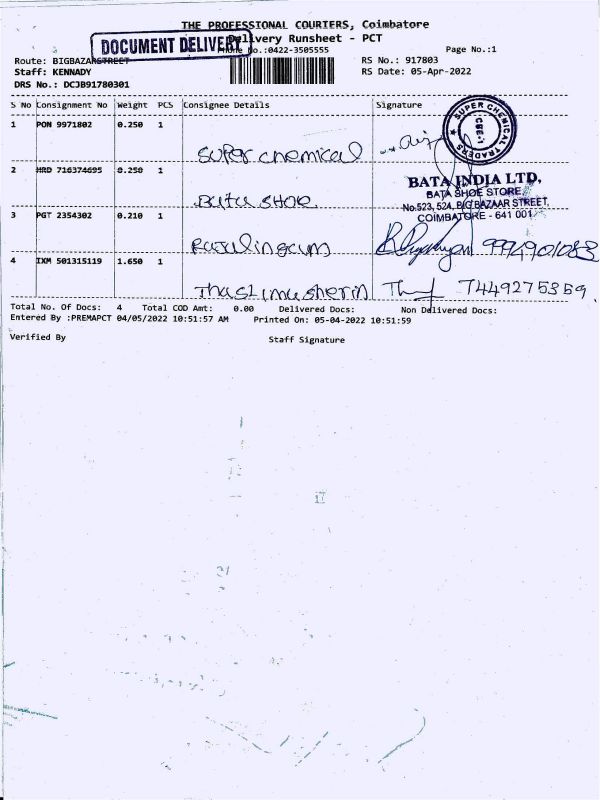 THE PROFESSIONAL COURIERS, Coimbatore
Delivery Runsheet - PCT
DOCUMENT DELIVERY
Phone No.:0422-3505555
Page No.:1
Route: BIGBAZARSTREET
RS No.: 917803
Staff: KENNADY
RS Date: 05-Apr-2022
DRS No.: DCJB91780301
S No Consignment No Weight PCS Consignee Details Signature
1 PON 9971802 0.250 1
Super chemical
SUPER CHEMICAL TRADERS CBE-1
2 HRD 716374695 0.250 1
Bata shoe
BATA INDIA LTD,
BATA SHOE STORE
No.523, 524, BIG BAZAAR STREET,
COIMBATORE - 641 001
3 PGT 2354302 0.210 1
Rajalingam
4 IXM 501315119 1.650 1
Thaslimasherin 7449275359
Total No. Of Docs: 4 Total COD Amt: 0.00 Delivered Docs: Non Delivered Docs:
Entered By :PREMAPCT 04/05/2022 10:51:57 AM Printed On: 05-04-2022 10:51:59
Verified By Staff Signature